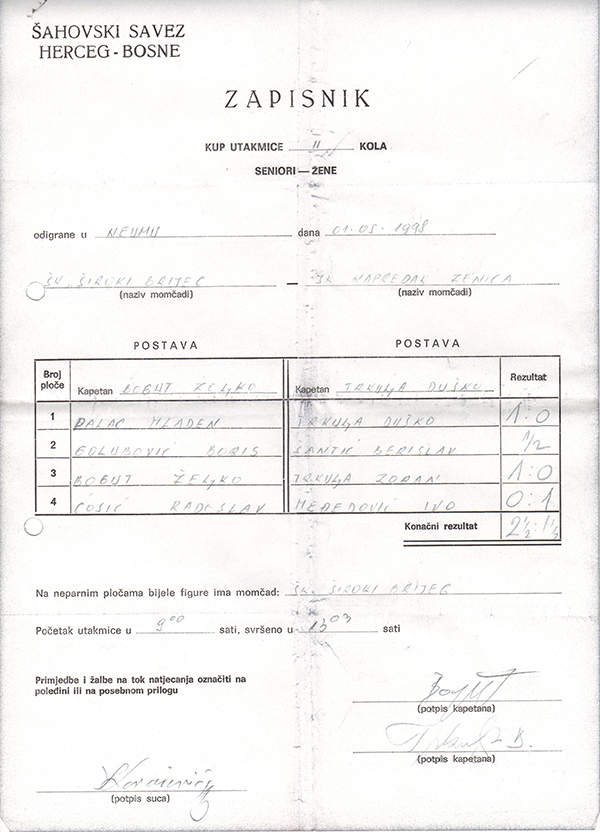 ŠAHOVSKI SAVEZ
HERCEG-BOSNE
ZAPISNIK
KUP UTAKMICE II KOLA
SENIORI — ŽENE
odigrane u NEUMU dana 01.05.1998
ŠK. ŠIROKI BRIJEG — ŠK NAPREDAK ZENICA
(naziv momčadi) (naziv momčadi)
POSTAVA POSTAVA
Broj ploče Kapetan BOGUT ŽELJKO Kapetan TRKULJA DUŠKO Rezultat
1 PALAC MLADEN TRKULJA DUŠKO 1:0
2 GOLUBOVIĆ BORIS ŠANTIĆ BERISLAV 1/2
3 BOGUT ŽELJKO TRKULJA ZORAN 1:0
4 ĆOSIĆ RADOSLAV MEĐEDOVIĆ IVO 0:1
Konačni rezultat 2½:1½
Na neparnim pločama bijele figure ima momčad: ŠK. ŠIROKI BRIJEG
Početak utakmice u 9 00 sati, svršeno u 13 03 sati
Primjedbe i žalbe na tok natjecanja označiti na
poledini ili na posebnom prilogu
Bogut
(potpis kapetana)
(potpis kapetana)
(potpis suca)